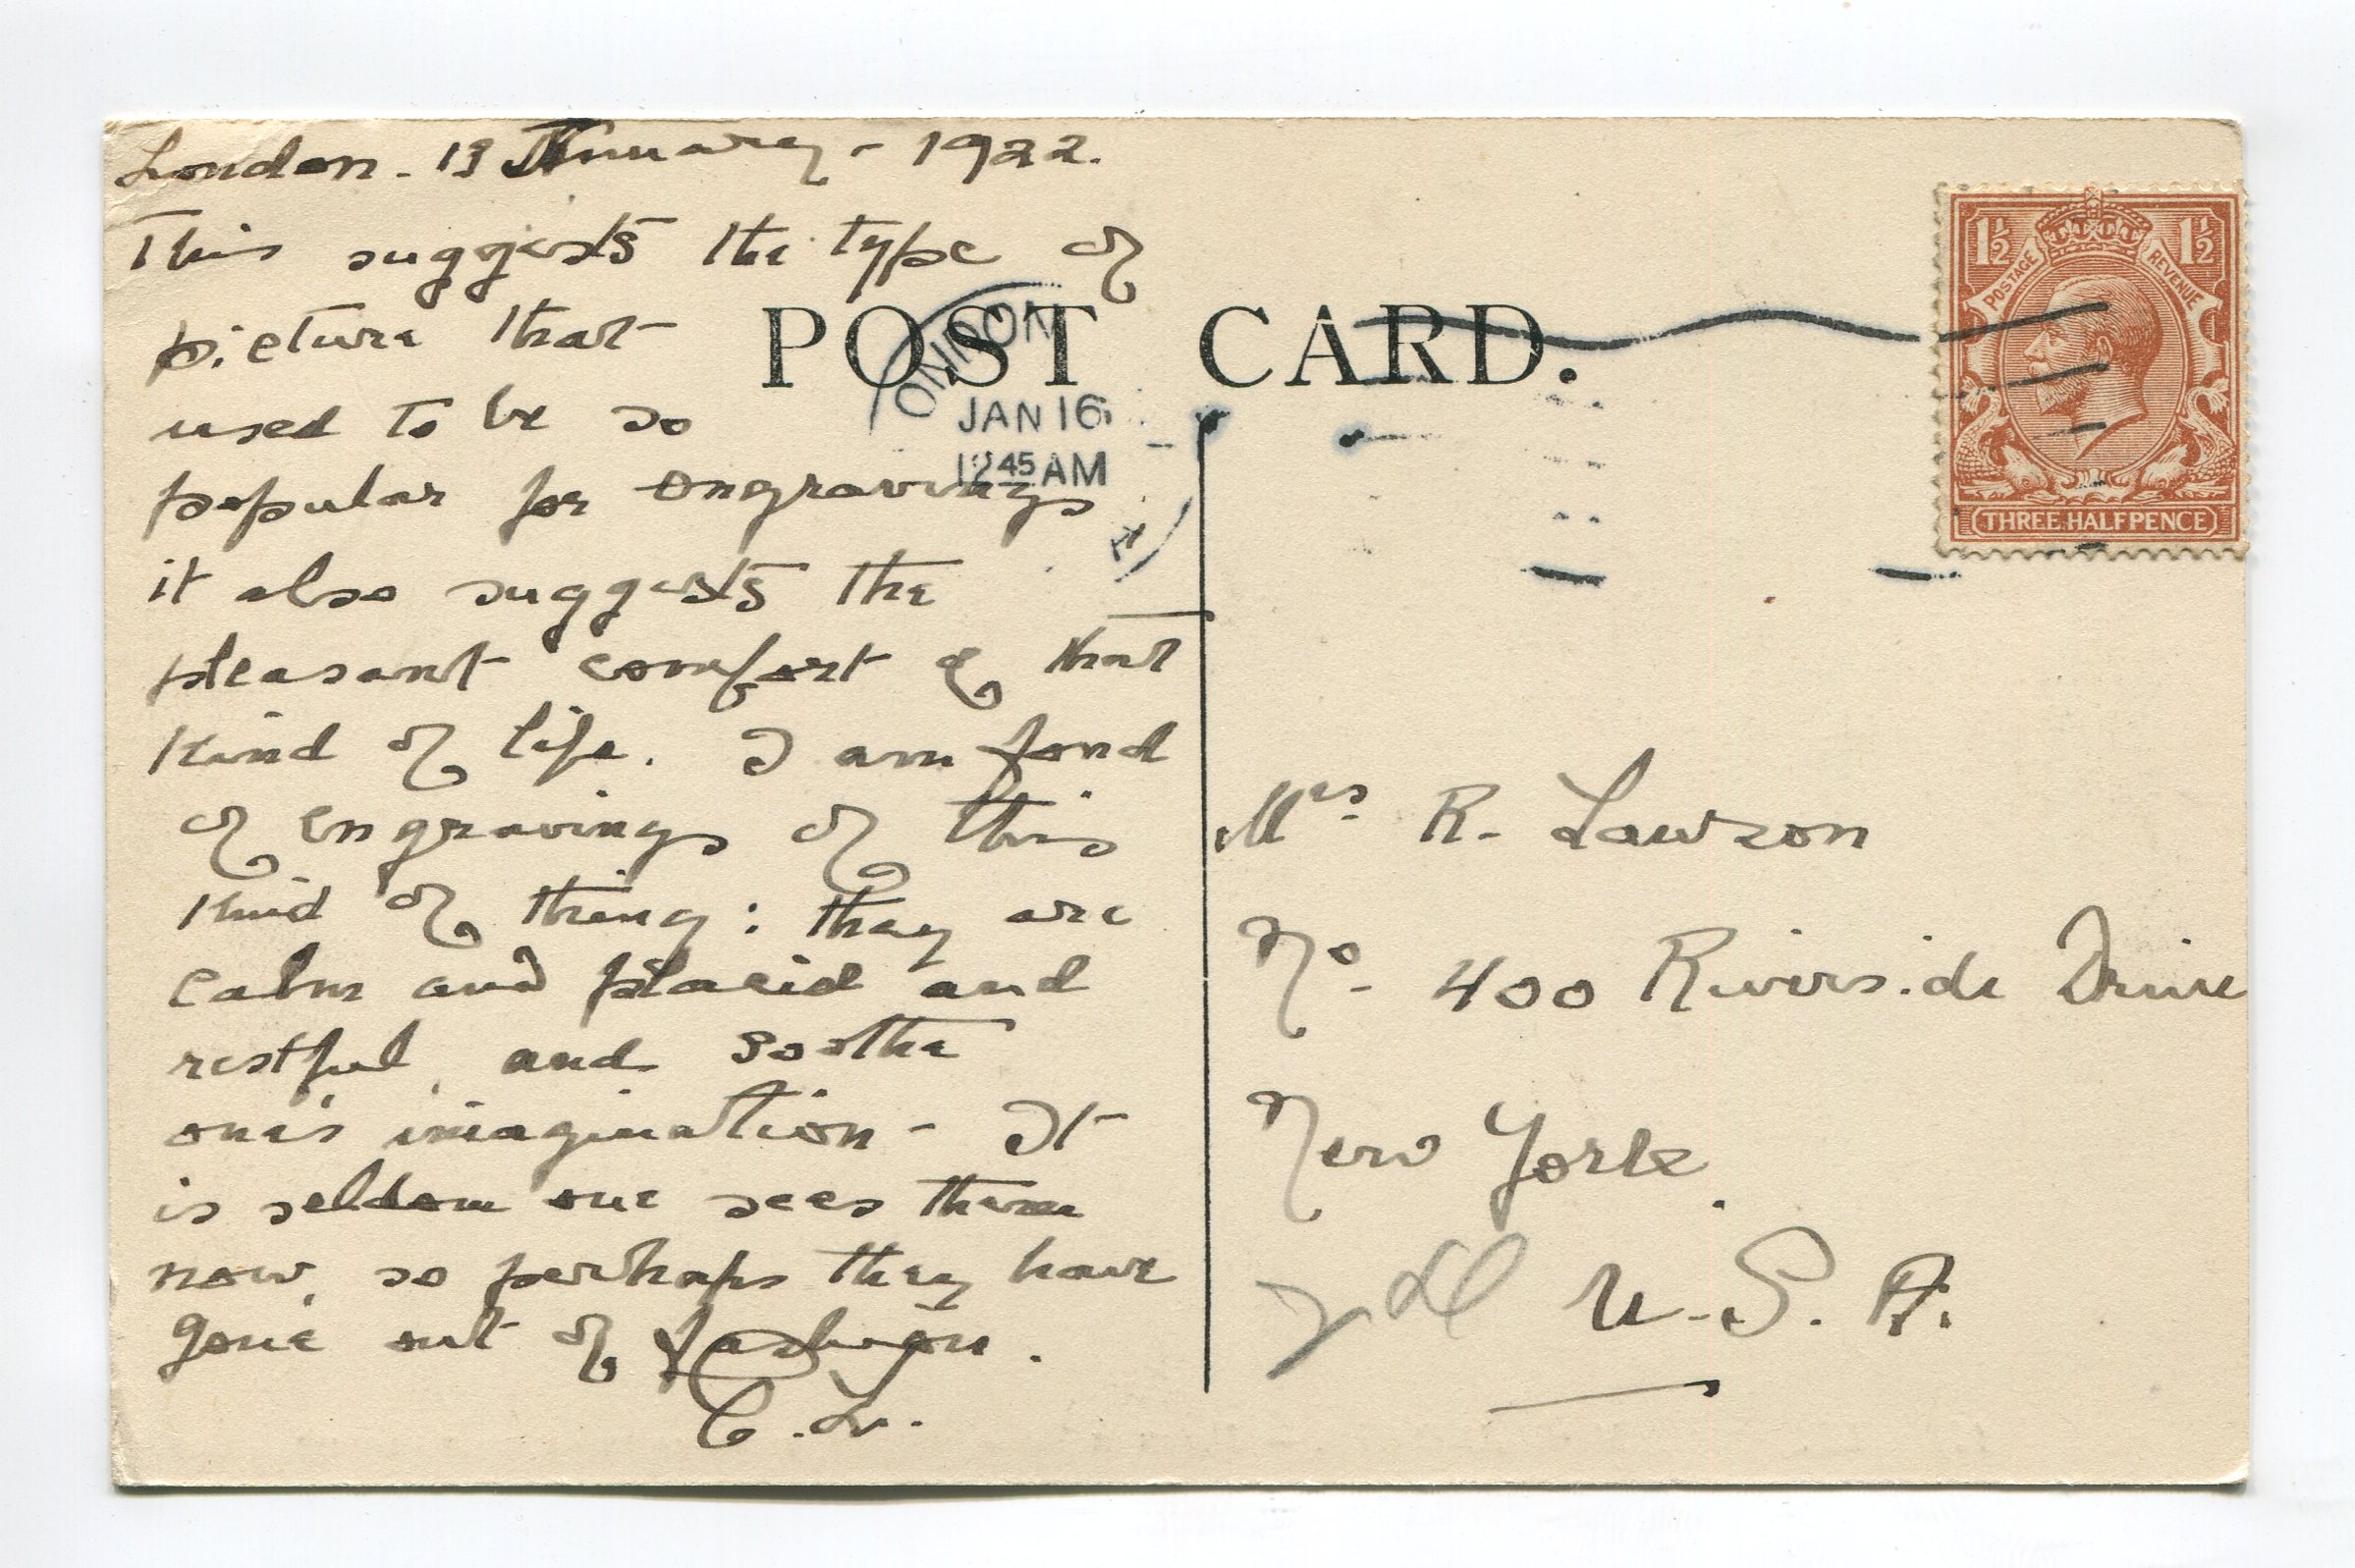 London - 13 January - 1922.
This suggests the type of
picture that
used to be so
popular for engravings
it also suggests the
pleasant comfort of that
kind of life. I am fond
of engravings of this
kind of thing: they are
calm and placid and
restful, and soothe
one's imagination - It
is seldom one sees them
now, so perhaps they have
gone out of fashion.
C. L.
POST CARD.
LONDON
JAN 16
12 45 AM
1½ 1½
POSTAGE REVENUE
THREE HALFPENCE
Mrs R. Lawson
No 400 Riverside Drive
New York.
U.S.A.